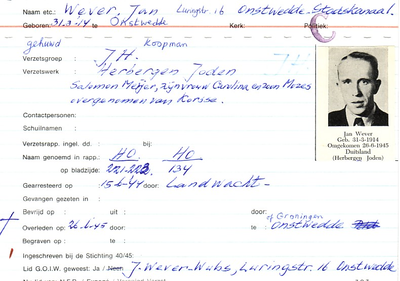 Naam etc.: Wever, Jan Luringstr. 16 Onstwedde-Stadskanaal.
Geboren: 31-3-'14 te Onstwedde Kerk: Politiek:
C
gehuwd Koopman
Verzetsgroep : J.H.
Verzetswerk : Herbergen Joden
Salomon Meijer, zijn vrouw Carolina en zoon Mozes
overgenomen van Korsse.
Contactpersonen:
Schuilnaam :
Verzetsrapp. ingel. dd. : bij:
Naam genoemd in rapp.: HO HO
op bladzijde: 134
Gearresteerd op 15-6-44 door: Landwacht-
Gevangen gezeten in :
Bevrijd op : uit : door:
of Groningen
Overleden op : 26-6-45 door: te: Onstwedde
Begraven op : te :
Ingeschreven bij de Stichting 40/45:
Lid G.O.I.W. geweest: Ja / Neen J. Wever-Wubs, Luringstr. 16 Onstwedde
Jan Wever
Geb. 31-3-1914
Omgekomen 26-6-1945
Duitsland
(Herbergen Joden)